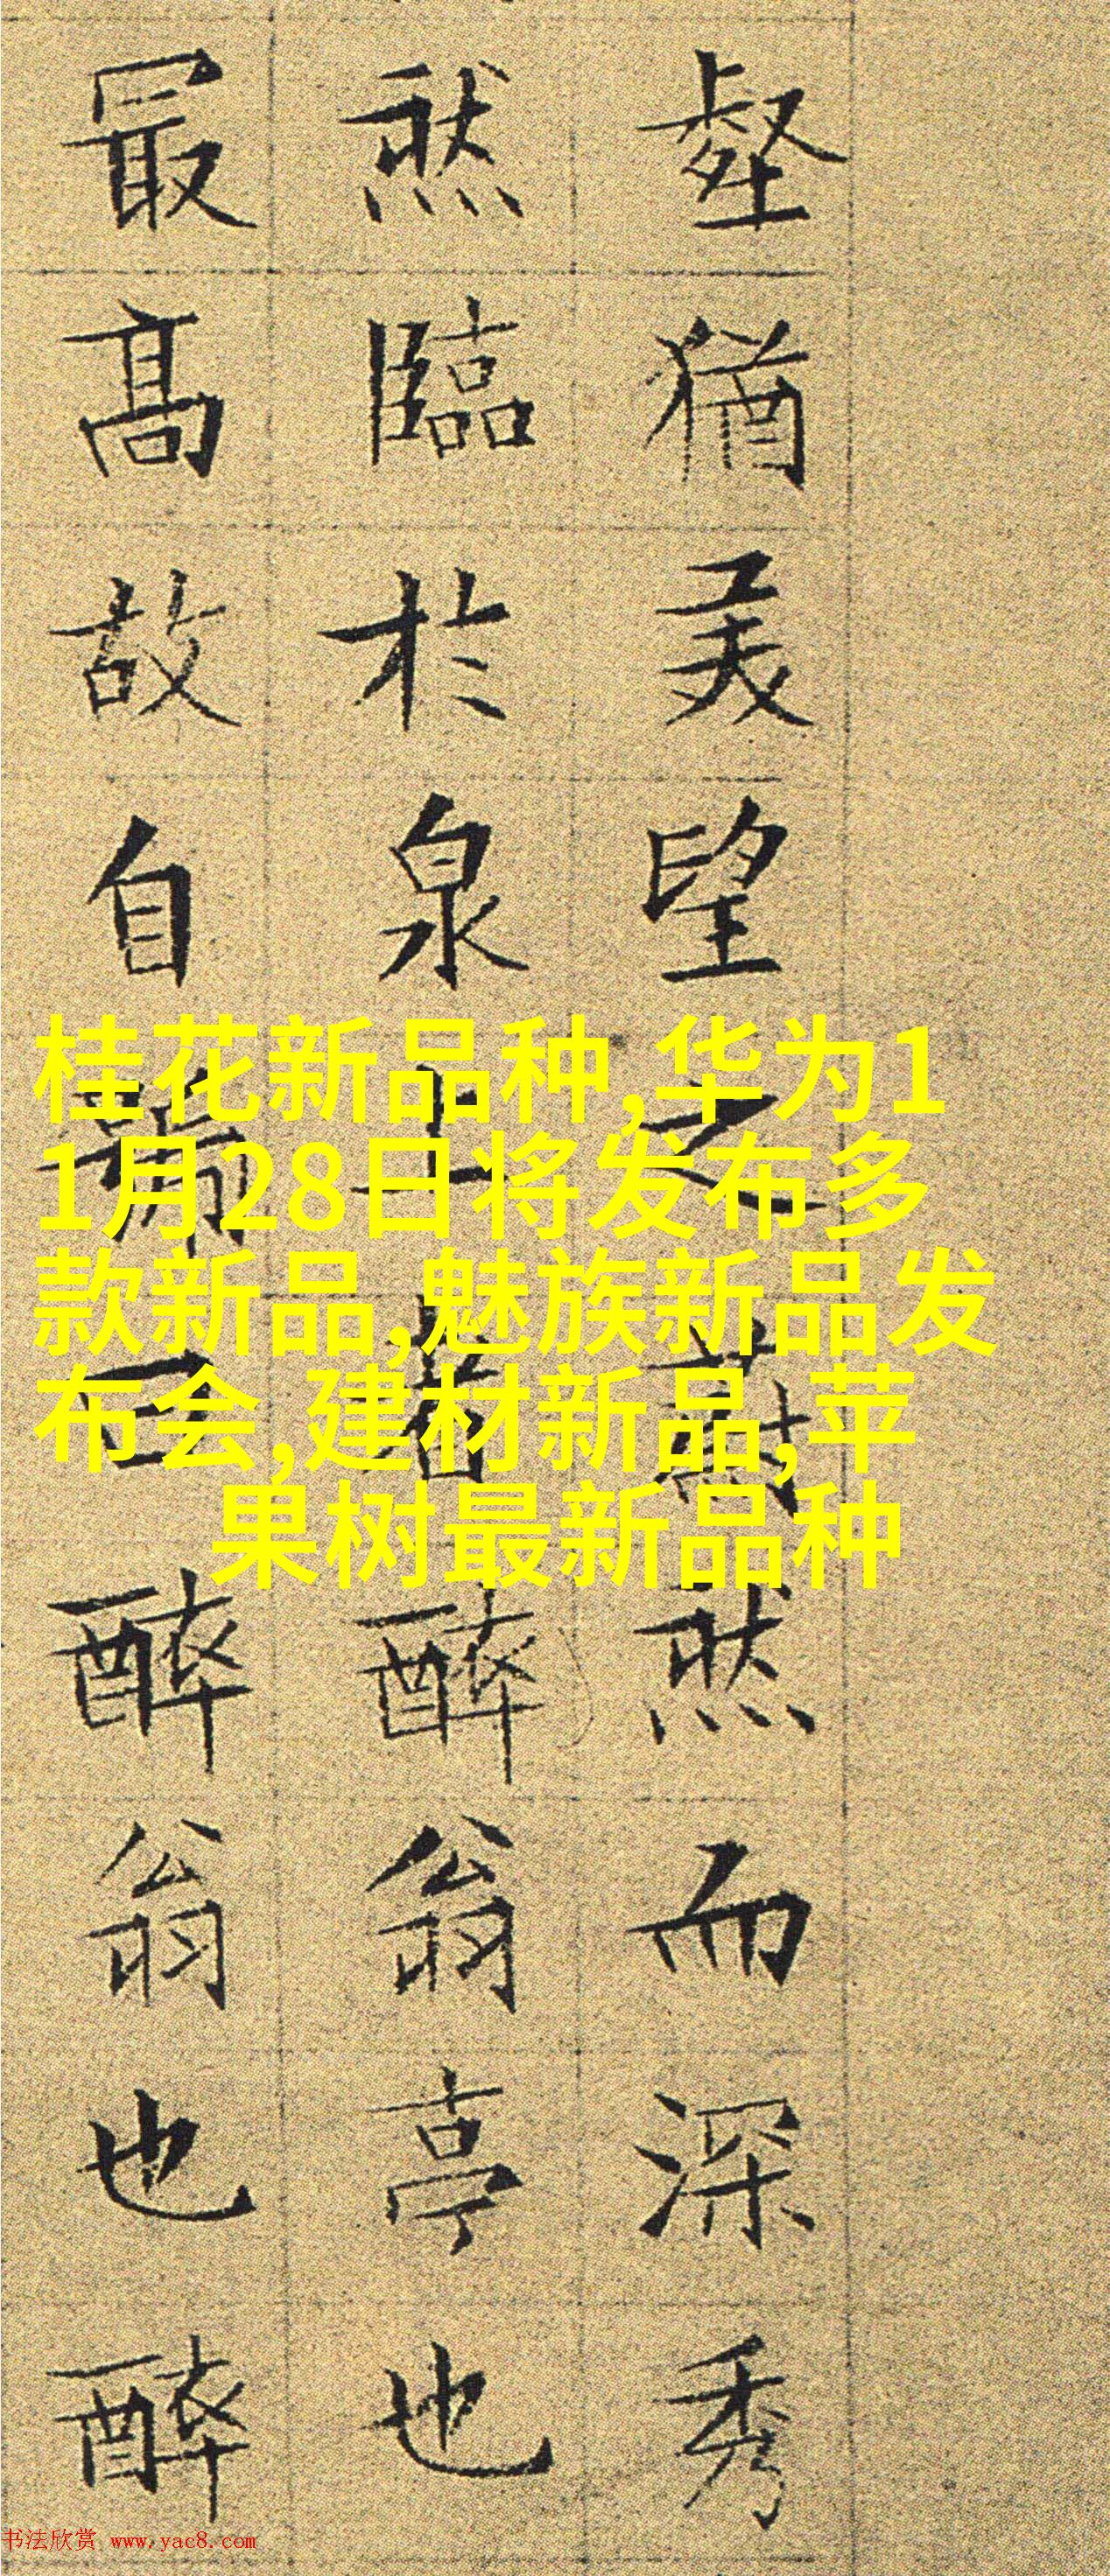 壑猶美望之蔚然而深秀
然臨於泉上者醉翁亭也
最高故自曰醉翁也醉
桂花新品种,华为1
1月28日将发布多
款新品,魅族新品发
布会,建材新品,苹
果树最新品种
书法欣赏 www.yac8.com